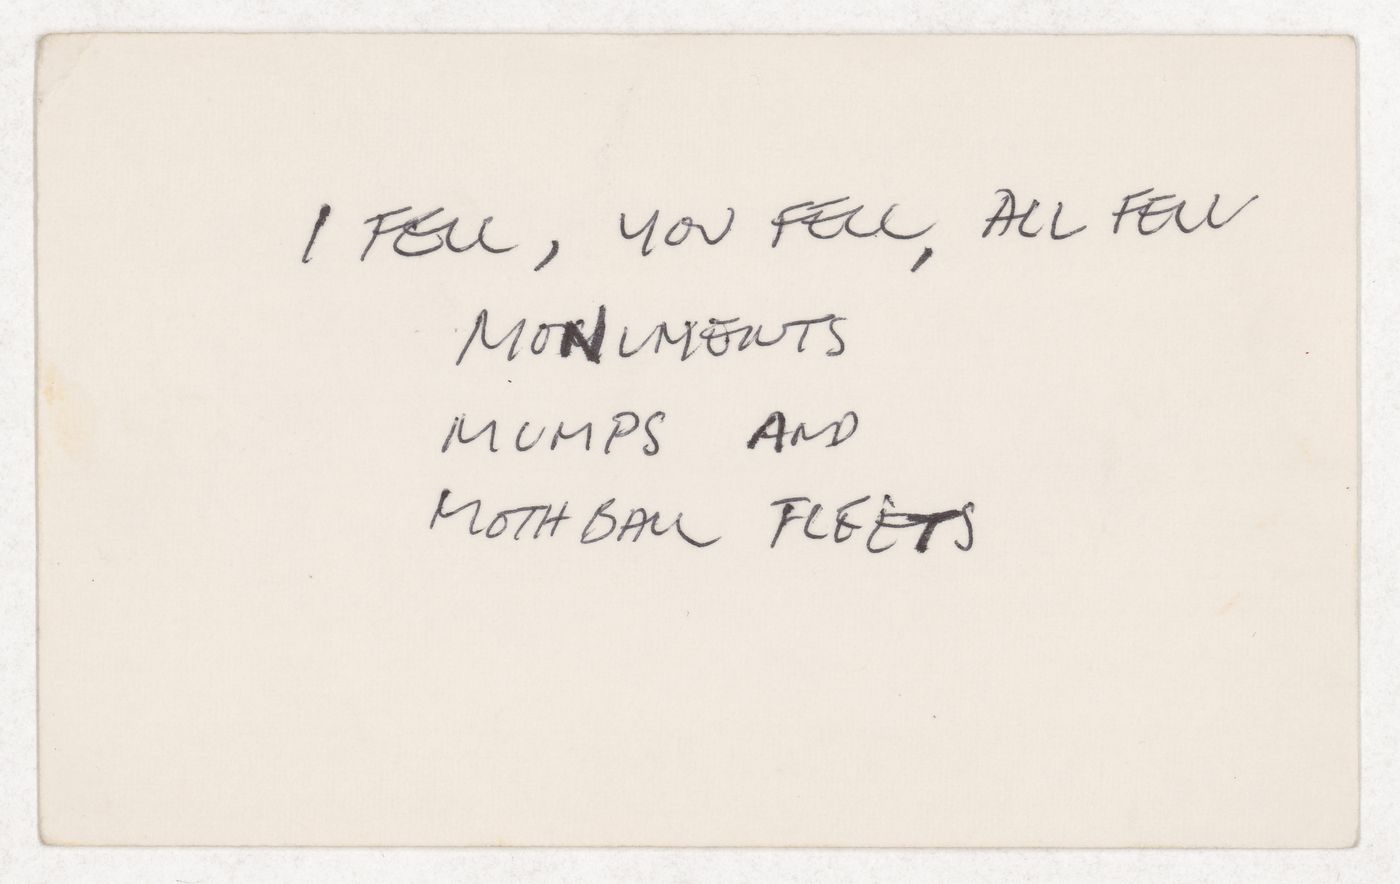 I FELL, YOU FELL, ALL FELL
MONUMENTS
MUMPS AND
MOTHBALL FLEETS